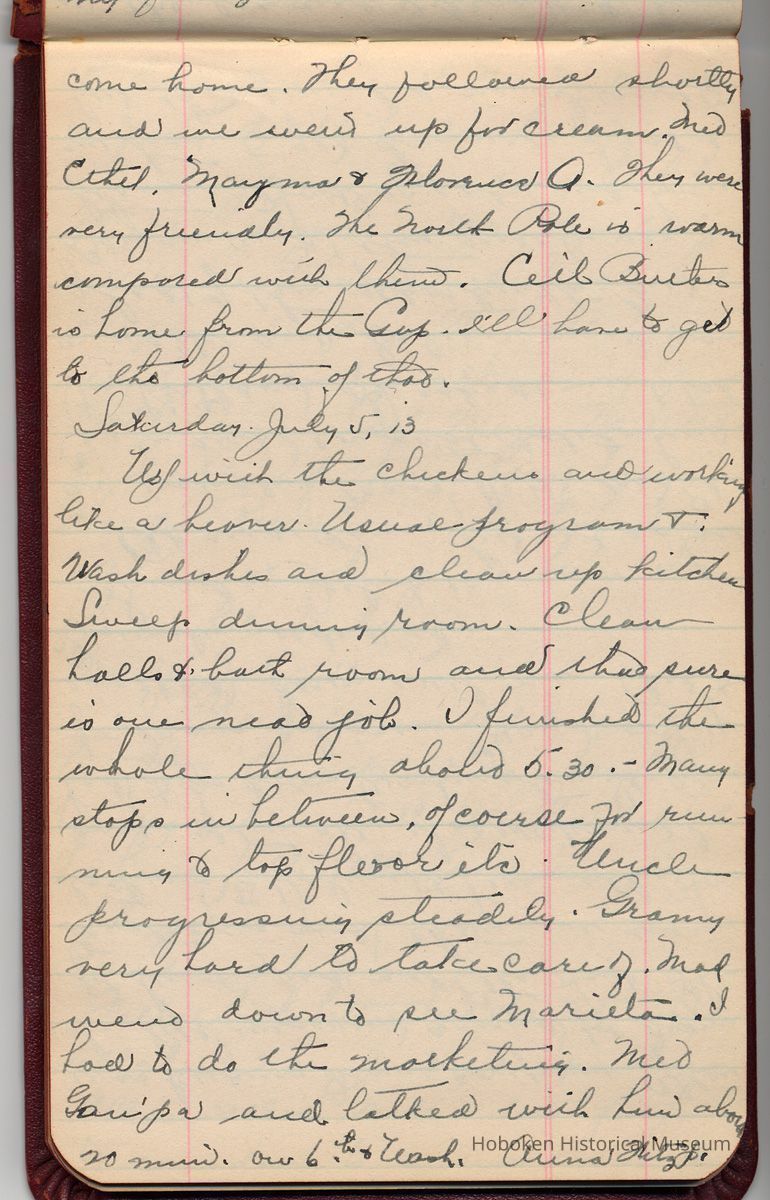 come home. They followed shortly
and we went up for cream. Med
Ethel, & Florence A. They were
very friendly. The North Pole is warm
compared with them. Ceil
is home from the Gap. I'll have to get
to the bottom of that.
Saturday. July 5, 13
Up with the chickens and working
like a beaver. Usual program &.
Wash dishes and clean up kitchen
Sweep dining room. Clean
halls & bath room and that sure
is one mad job. I finished the
whole thing about 5.30.- Many
stops in between, of course for run-
ning to top floor etc. Uncle
progressing steadily. Granny
very hard to take care of. Mad
went down to see Marieta. I
had to do the marketing. Med
Gran'pa and talked with him about
20 min. on 6th & Wash. Anna Fitzp.
Hoboken Historical Museum